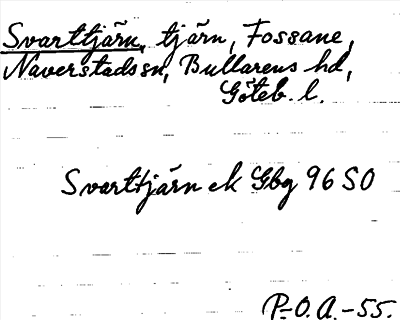 Svarttjärn, tjärn, Fossane,
Naverstads sn, Bullarens hd,
Göteb. l.
Svarttjärn ek Gbg 96 SO
P.-O. A. -55.